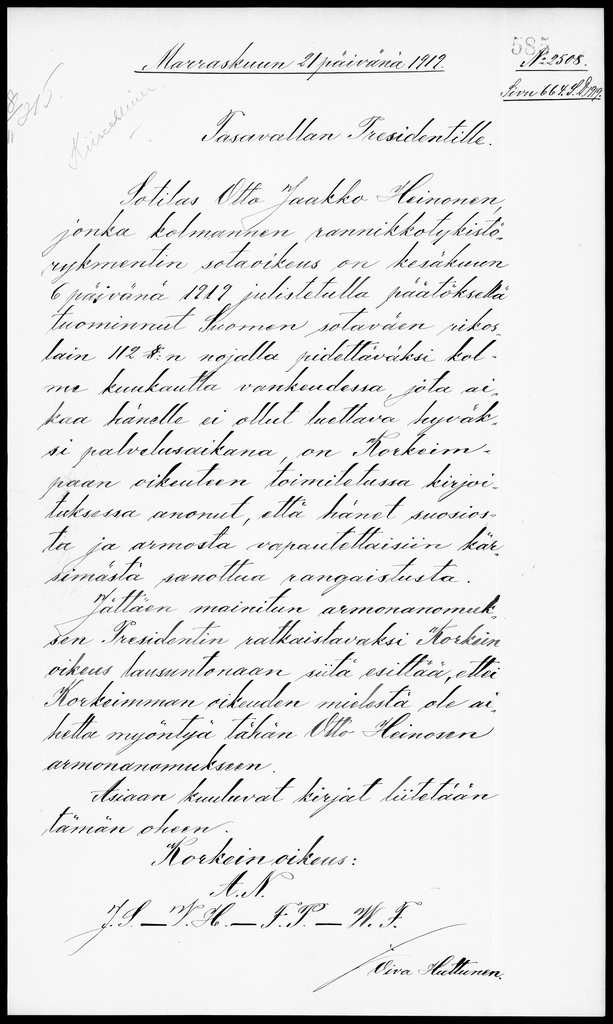 585
Marraskuun 21 päivänä 1919.
No 2508.
Sivu 664. S.D. 1919.
Tasavallan Presidentille.
Sotilas Otto Jaakko Heinonen,
jonka kolmannen rannikkotykistö-
rykmentin sotaoikeus on kesäkuun
6 päivänä 1919 julistetulla päätöksellä
tuominnut Suomen sotaväen rikos-
lain 112 §:n nojalla pidettäväksi kol-
me kuukautta vankeudessa, jota ai-
kaa hänelle ei ollut luettava hyväk-
si palvelusaikana, on Korkeim-
paan oikeuteen toimitetussa kirjoi-
tuksessa anonut, että hänet suosios-
ta ja armosta vapautettaisiin kär-
simästä sanottua rangaistusta.
Jättäen mainitun armonanomuk-
sen Presidentin ratkaistavaksi Korkein
oikeus lausuntonaan siitä esittää, ettei
Korkeimman oikeuden mielestä ole ai-
hetta myöntyä tähän Otto Heinosen
armonanomukseen.
Asiaan kuuluvat kirjat liitetään
tämän oheen.
Korkein oikeus:
A.N.
J.S. — V.H. — F.P. — W.F.
Oiva Huttunen.